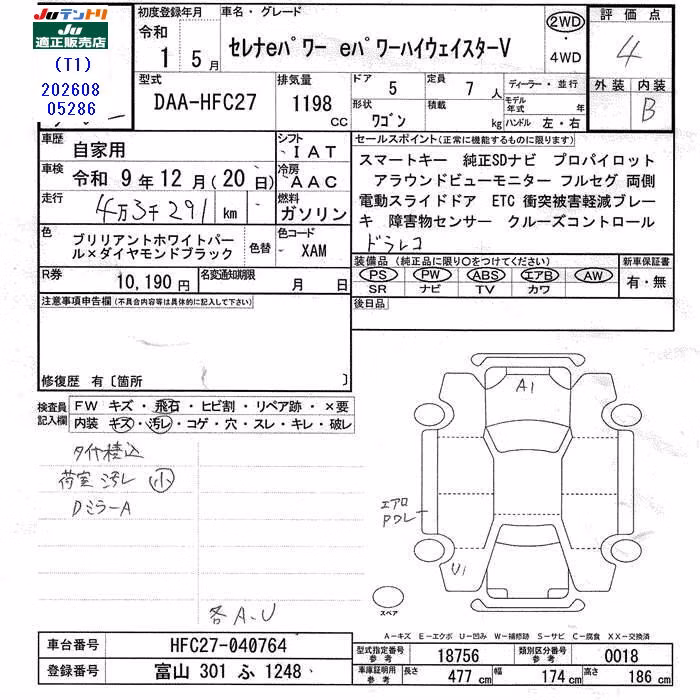 JUテントリ
JU
適正販売店
(T1)
202608
05286
初度登録年月
令和
1 5月
車名・グレード
セレナeパワー eパワーハイウェイスターV
2WD
・
4WD
評価点
4
外装 内装
B
型式
DAA-HFC27
排気量
1198
CC
ドア
5
定員
7人
形状
ワゴン
積載
kg
ディーラー・並行
モデル年式 年
ハンドル 左・右
車歴
自家用
シフト
IAT
車検
令和 9年12月(20日)
冷房
AAC
走行
4万3千291km
燃料
ガソリン
色
ブリリアントホワイトパール×ダイヤモンドブラック
色替
色コード
XAM
R券
10,190円
名変通知期限
月 日
セールスポイント(正常に機能するものに限ります)
スマートキー 純正SDナビ プロパイロット
アラウンドビューモニター フルセグ 両側
電動スライドドア ETC 衝突被害軽減ブレー
キ 障害物センサー クルーズコントロール
ドラレコ
装備品(純正品に限り○をつけてください)
PS PW ABS エアB AW
SR ナビ TV カワ
新車保証書
有・無
後日品
注意事項申告欄(不具合内容等は具体的に記入して下さい)
修復歴 有〔箇所 〕
検査員
記入欄
FW キズ・飛石・ヒビ割・リペア跡・×要
内装 キズ・汚レ・コゲ・穴・スレ・キレ・破レ
タイヤ積込
荷室汚レ 小
DミラーA
各A.U
A1
エアロ
Pワレ
U1
スペア
A-キズ E-エクボ U-凹み W-補修跡 S-サビ C-腐食 XX-交換済
車台番号
HFC27-040764
登録番号
富山 301 ふ 1248
型式指定番号
参考
18756
類別区分番号
参考
0018
車庫証明用
参考
長さ
477 cm
幅
174 cm
高さ
186 cm